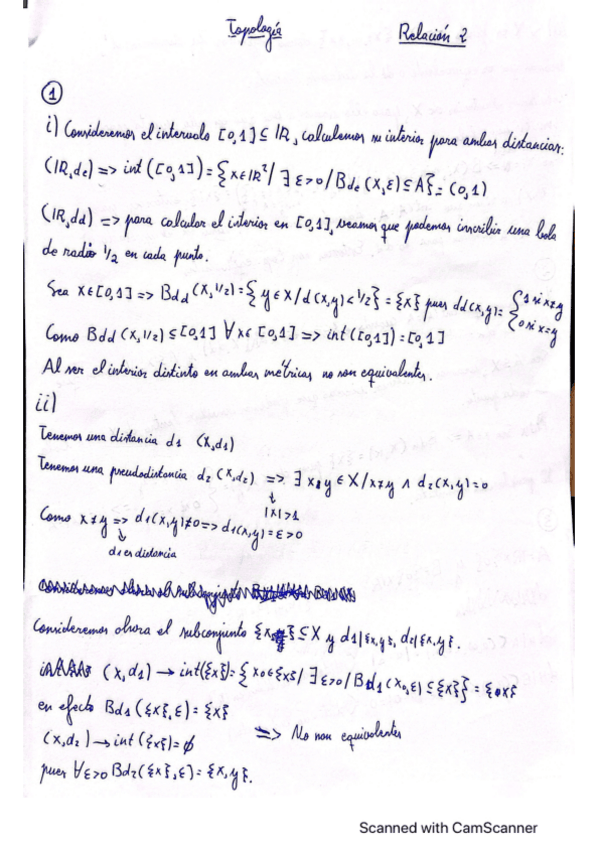 Topología Relación 2
①
i) Consideremos el intervalo [0,1] ⊆ ℝ, calculemos su interior para ambas distancias:
(ℝ,de) => int([0,1]) = {x∈ℝ²/ ∃ ε>0/ Bde(x,ε) ⊆ A} = (0,1)
(ℝ,dd) => para calcular el interior en [0,1], veamos que podemos inscribir una bola
de radio 1/2 en cada punto.
Sea x∈[0,1] => Bdd(x,1/2) = {y∈X/d(x,y)<1/2} = {x} pues dd(x,y) = {1 si x≠y
0 si x=y
Como Bdd(x,1/2) ⊆ [0,1] ∀x∈[0,1] => int([0,1]) = [0,1]
Al ser el interior distinto en ambas métricas no son equivalentes.
ii)
Tenemos una distancia d1 (X,d1)
Tenemos una pseudodistancia d2 (X,d2) => ∃ x,y ∈ X/x≠y ∧ d2(x,y)=0
↓
|X|>1
Como x≠y => d1(x,y)≠0 => d1(x,y)=ε>0
↓
d1 es distancia
Consideremos ahora el subconjunto {x,y} ⊆ X y d1|{x,y}, d2|{x,y}.
(X,d1) → int({x}) = {x0∈{x}/ ∃ε>0/ Bd1(x0,ε) ⊆ {x}} = {x}
en efecto Bd1({x},ε) = {x}
(X,d2) → int({x}) = ∅ => No son equivalentes
pues ∀ε>0 Bd2({x},ε) = {x,y}.
Scanned with CamScanner